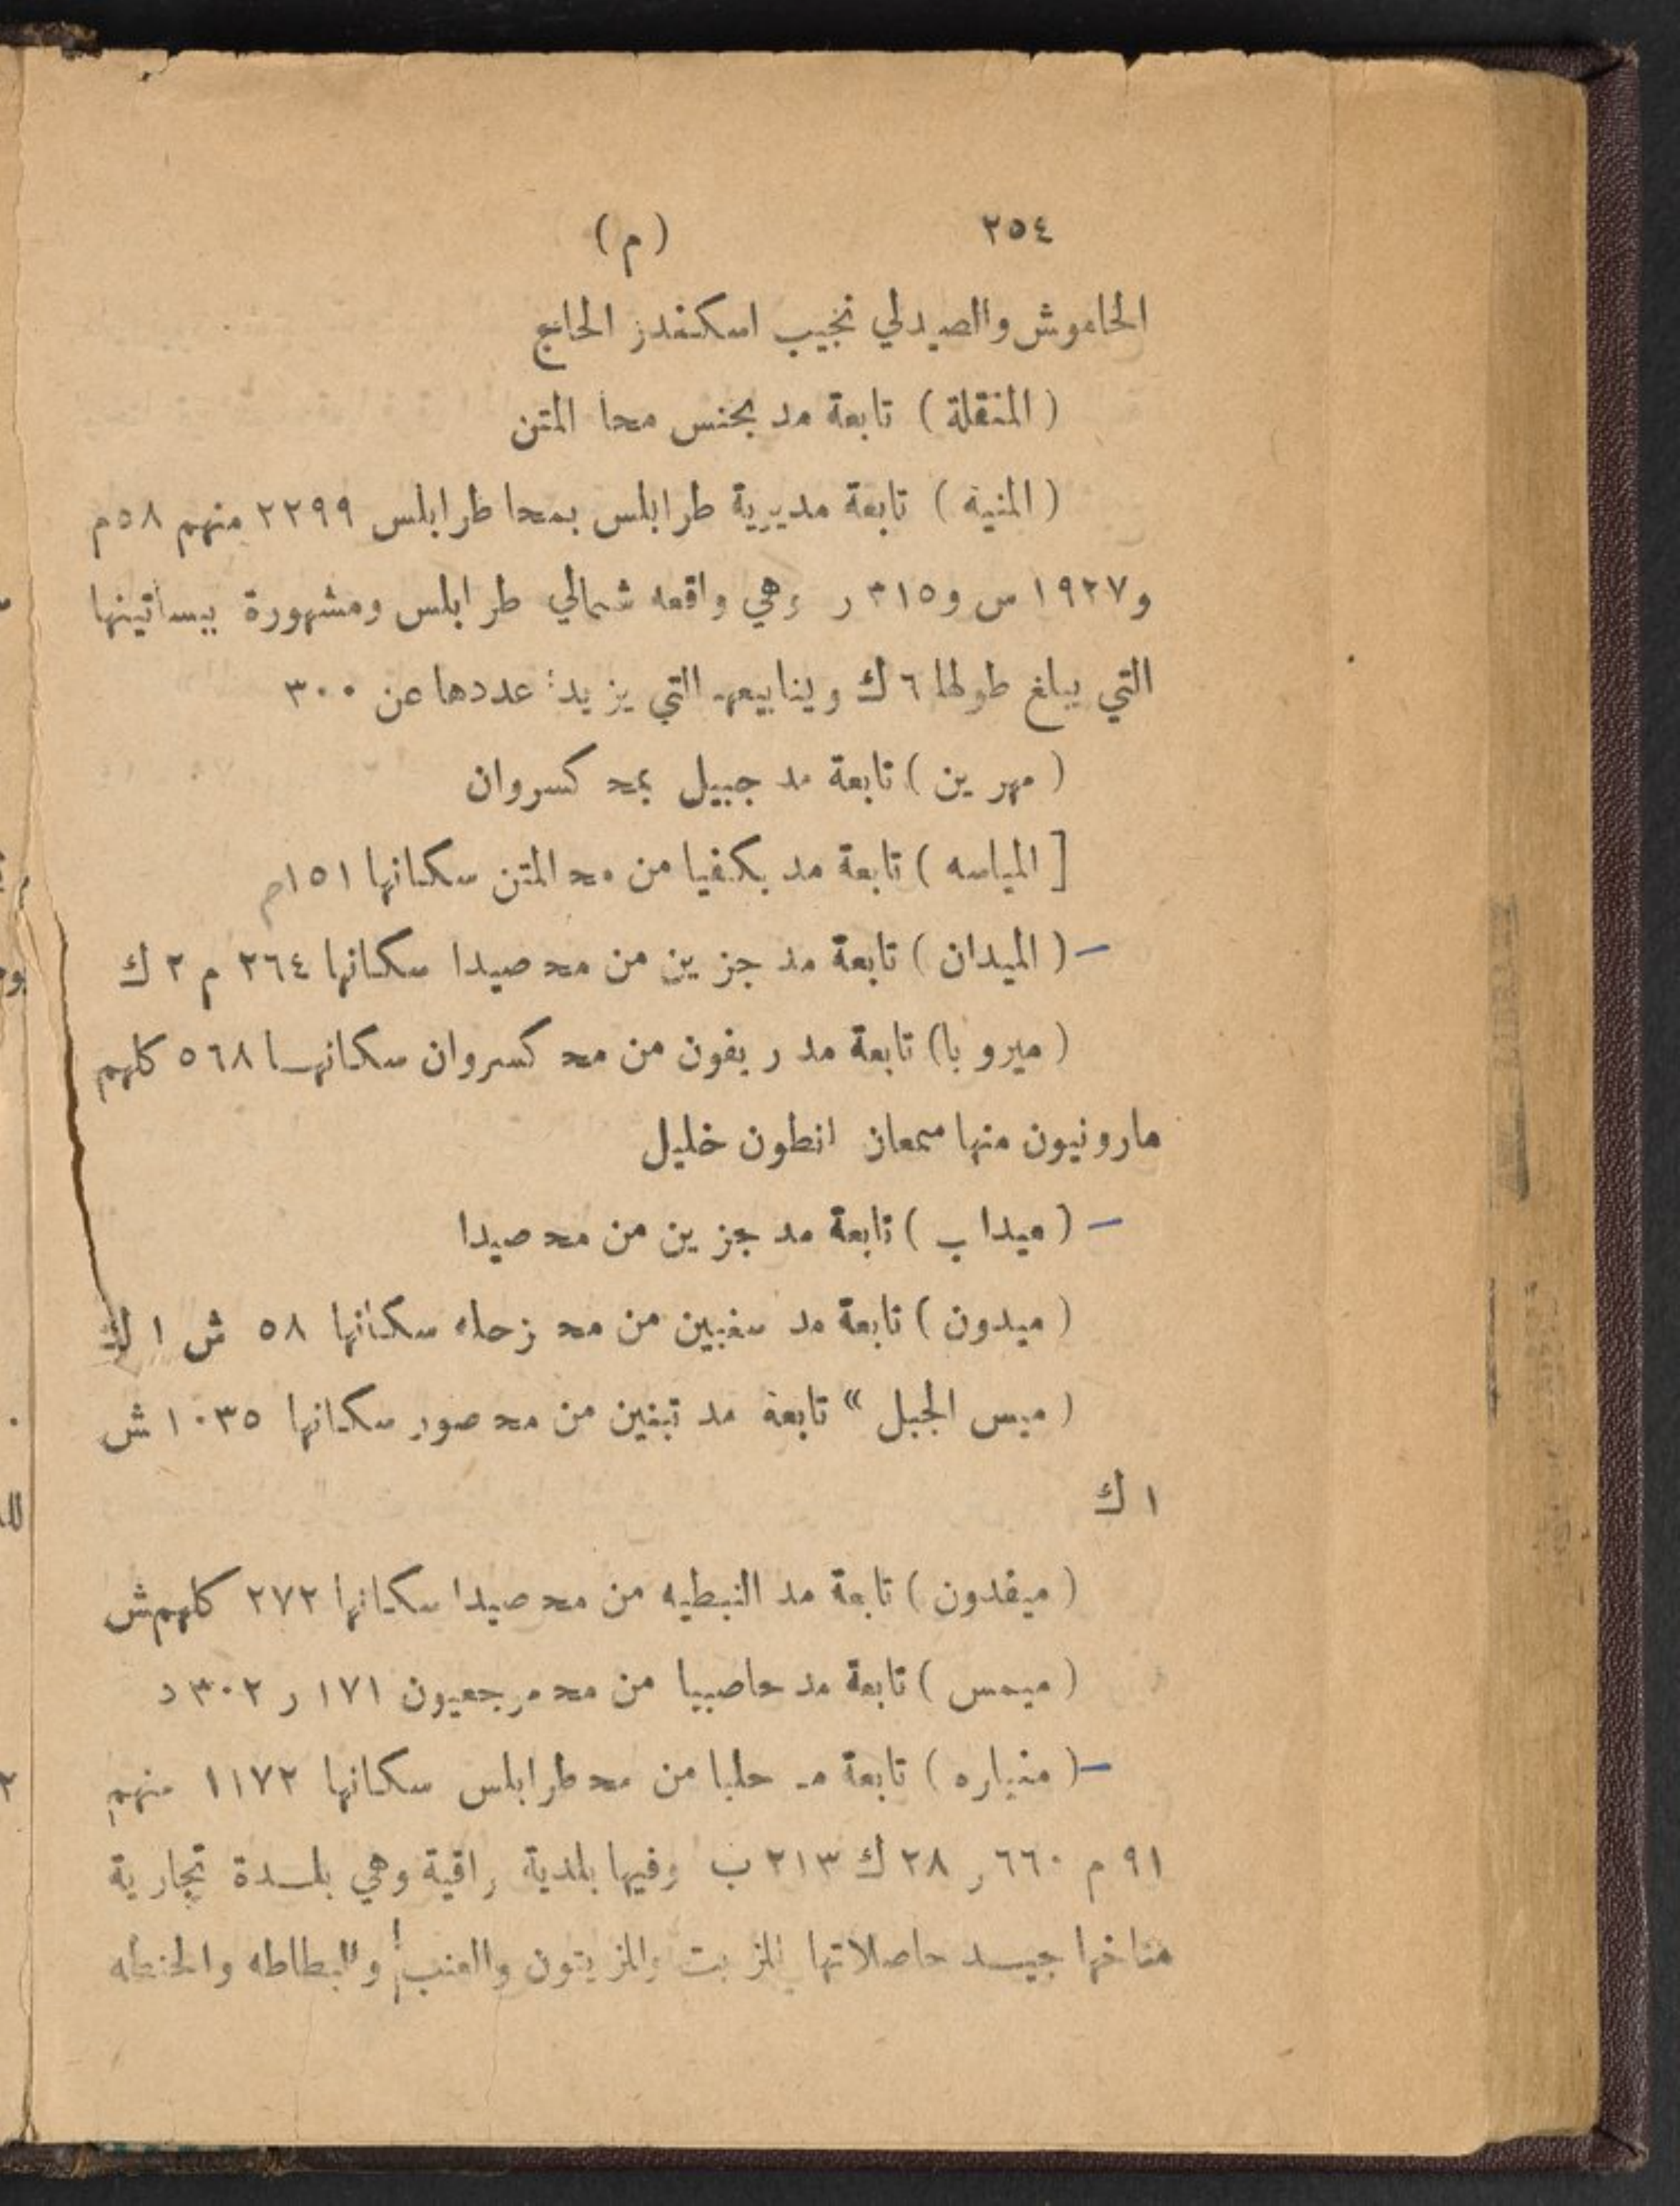 ٢٥٤ (م)
الخاموش والصيدلي نجيب اسكندر الحاج
( المنقلة ) تابعة مد بجنس محا المتن
( المنيه ) تابعة مديرية طرابلس بمحا طرابلس ٢٢٩٩ منهم ٥٨ م
و١٩٢٧ س و٣١٥ ر وهي واقعه شمالي طرابلس ومشهورة ببساتينها
التي يبلغ طولها ٦ ك وينابيعها التي يزيد عددها عن ٣٠٠
( مهرين ) تابعة مد جبيل بمحد كسروان
[ المياسه ) تابعة مد بكفيا من محد المتن سكانها ١٥١ م
– ( الميدان ) تابعة مد جزين من محد صيدا سكانها ٢٦٤ م ٢ ك
( ميروبا ) تابعة مد ريفون من محد كسروان سكانها ٥٦٨ كلهم
مارونيون منها سمعان انطون خليل
– ( ميداب ) تابعة مد جزين من محد صيدا
( ميدون ) تابعة مد سغبين من محد زحله سكانها ٥٨ ش ١ ك
( ميس الجبل » تابعة مد تبنين من محد صور سكانها ١٠٣٥ ش
١ ك
( ميفدون ) تابعة مد النبطيه من محد صيدا سكانها ٢٧٢ كلهم ش
( ميمس ) تابعة مد حاصبيا من محد مرجعيون ١٧١ ر ٣٠٢ د
– ( منياره ) تابعة مد حلبا من محد طرابلس سكانها ١١٧٢ منهم
٩١ م ٦٦٠ ر ٢٨ ك ٢١٣ ب وفيها بلدية راقية وهي بلدة تجارية
مناخها جيد حاصلاتها الزيت والزيتون والعنب والبطاطه والحنطه